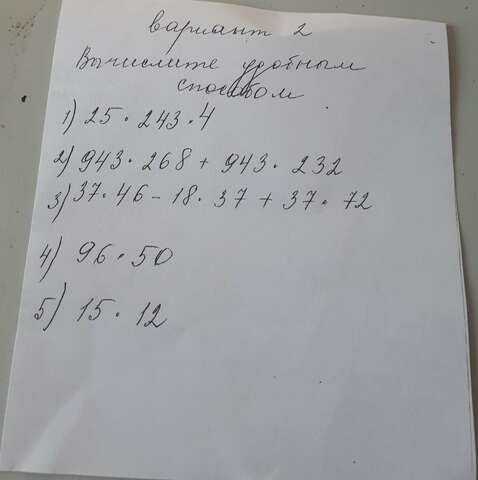 вариант 2
Вычислите удобным
способом
1) 25 · 243 · 4
2) 943 · 268 + 943 · 232
3) 37 · 46 - 18 · 37 + 37 · 72
4) 96 · 50
5) 15 · 12